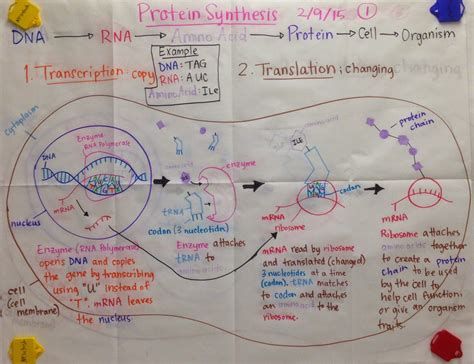 Protein Synthesis 2/9/15 1
DNA → RNA → Amino Acid → Protein → Cell → Organism
Example
DNA: TAG
RNA: AUC
Amino Acid: Ile
1. Transcription: copy
2. Translation: changing
cytoplasm
Enzyme
RNA Polymerase
DNA
mRNA
nucleus
cell
(cell
membrane)
Enzyme (RNA Polymerase)
opens DNA and copies
the gene by transcribing
using "U" instead of
"T". mRNA leaves
the nucleus
enzyme
tRNA
codon (3 nucleotides)
Enzyme attaches
tRNA to
amino acids
ILE
amino acid
codon
mRNA
ribosome
mRNA read by ribosome
and translated (changed)
3 nucleotides at a time
(codon). tRNA matches
to codon and attaches
an amino acid
to the ribosome
protein
chain
mRNA
ribosome
Ribosome attaches
amino acids together
to create a protein
chain to be used
by the cell to
help cell function
or give an organism
traits.